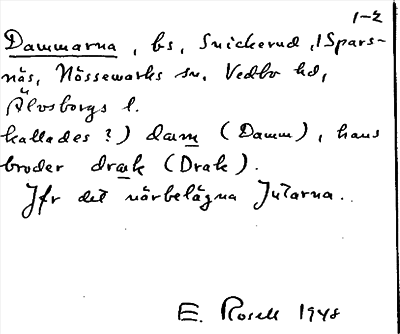 1-2
Dammarna, bs, Snickerud, i Spars-
näs, Nössemarks sn. Vedbo hd,
Älvsborgs l.
kallades ?) dam (Damm), hans
broder drak (Drak).
Jfr det närbelägna Jutarna..
E. Rosell 1948